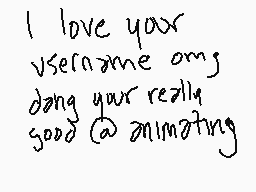 I love your
username omg
dang your really
good @ animating